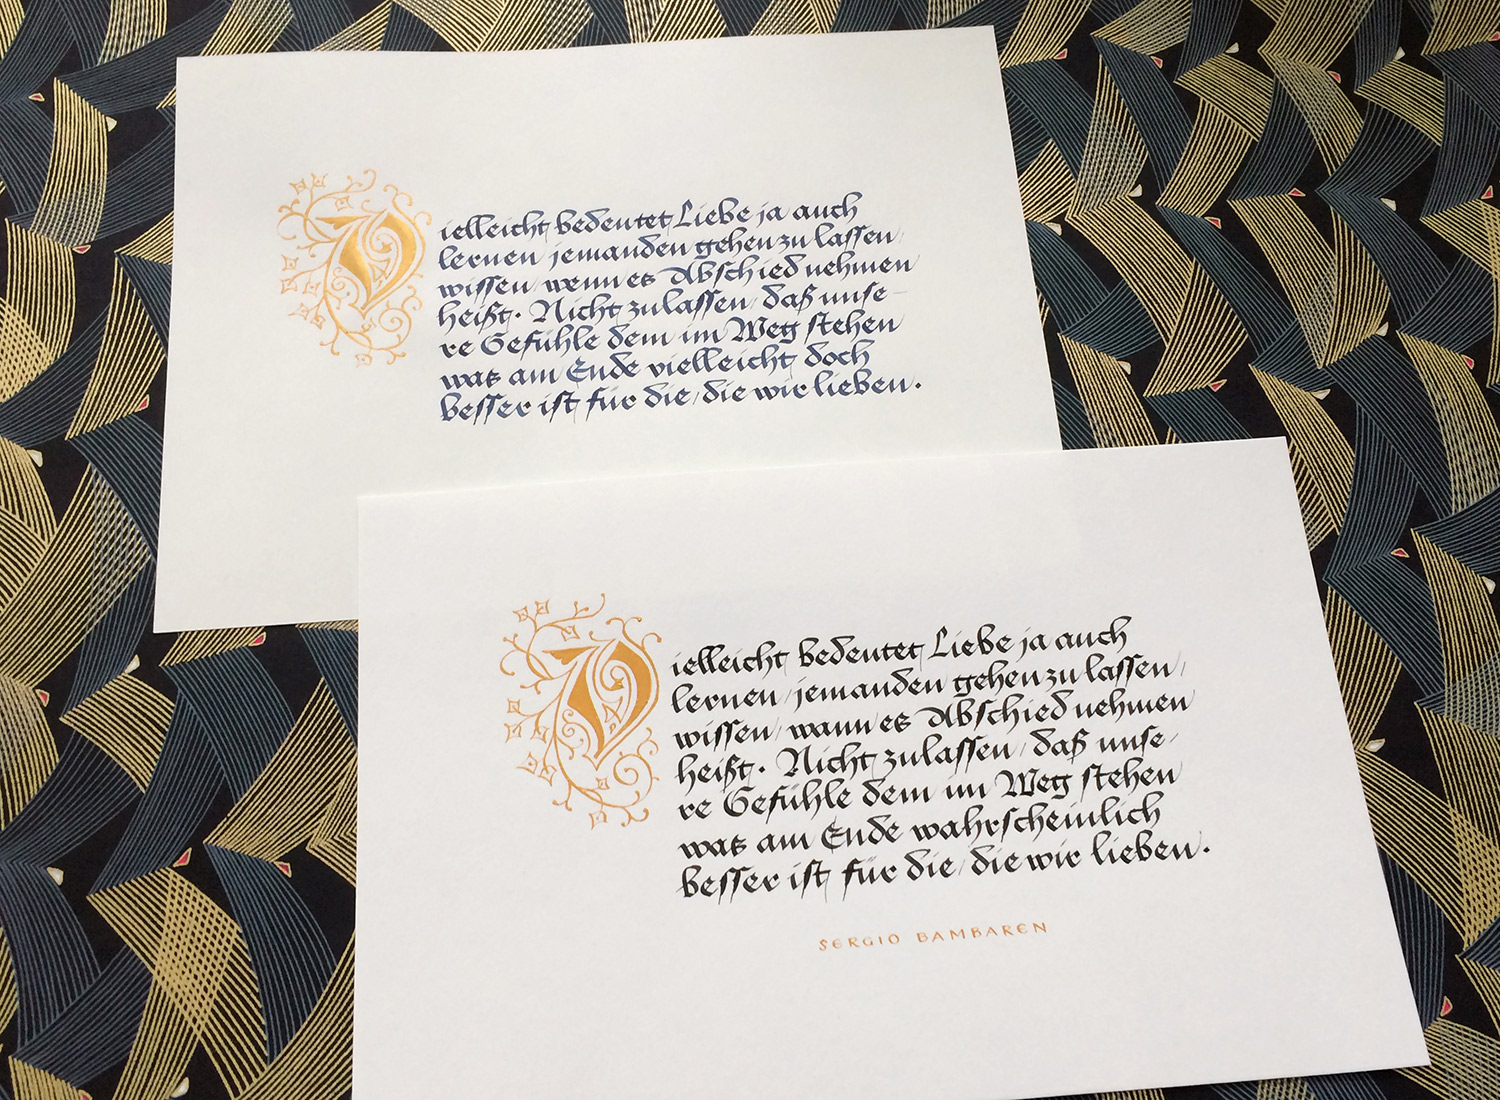 Vielleicht bedeutet Liebe ja auch
lernen, jemanden gehen zu lassen,
wissen, wenn es Abschied nehmen
heißt. Nicht zulassen, daß unse-
re Gefühle dem im Weg stehen
was am Ende vielleicht doch
besser ist für die, die wir lieben.
Vielleicht bedeutet Liebe ja auch
lernen, jemanden gehen zu lassen,
wissen, wann es Abschied nehmen
heißt. Nicht zulassen, daß unse-
re Gefühle dem im Weg stehen
was am Ende wahrscheinlich
besser ist für die, die wir lieben.
SERGIO BAMBAREN